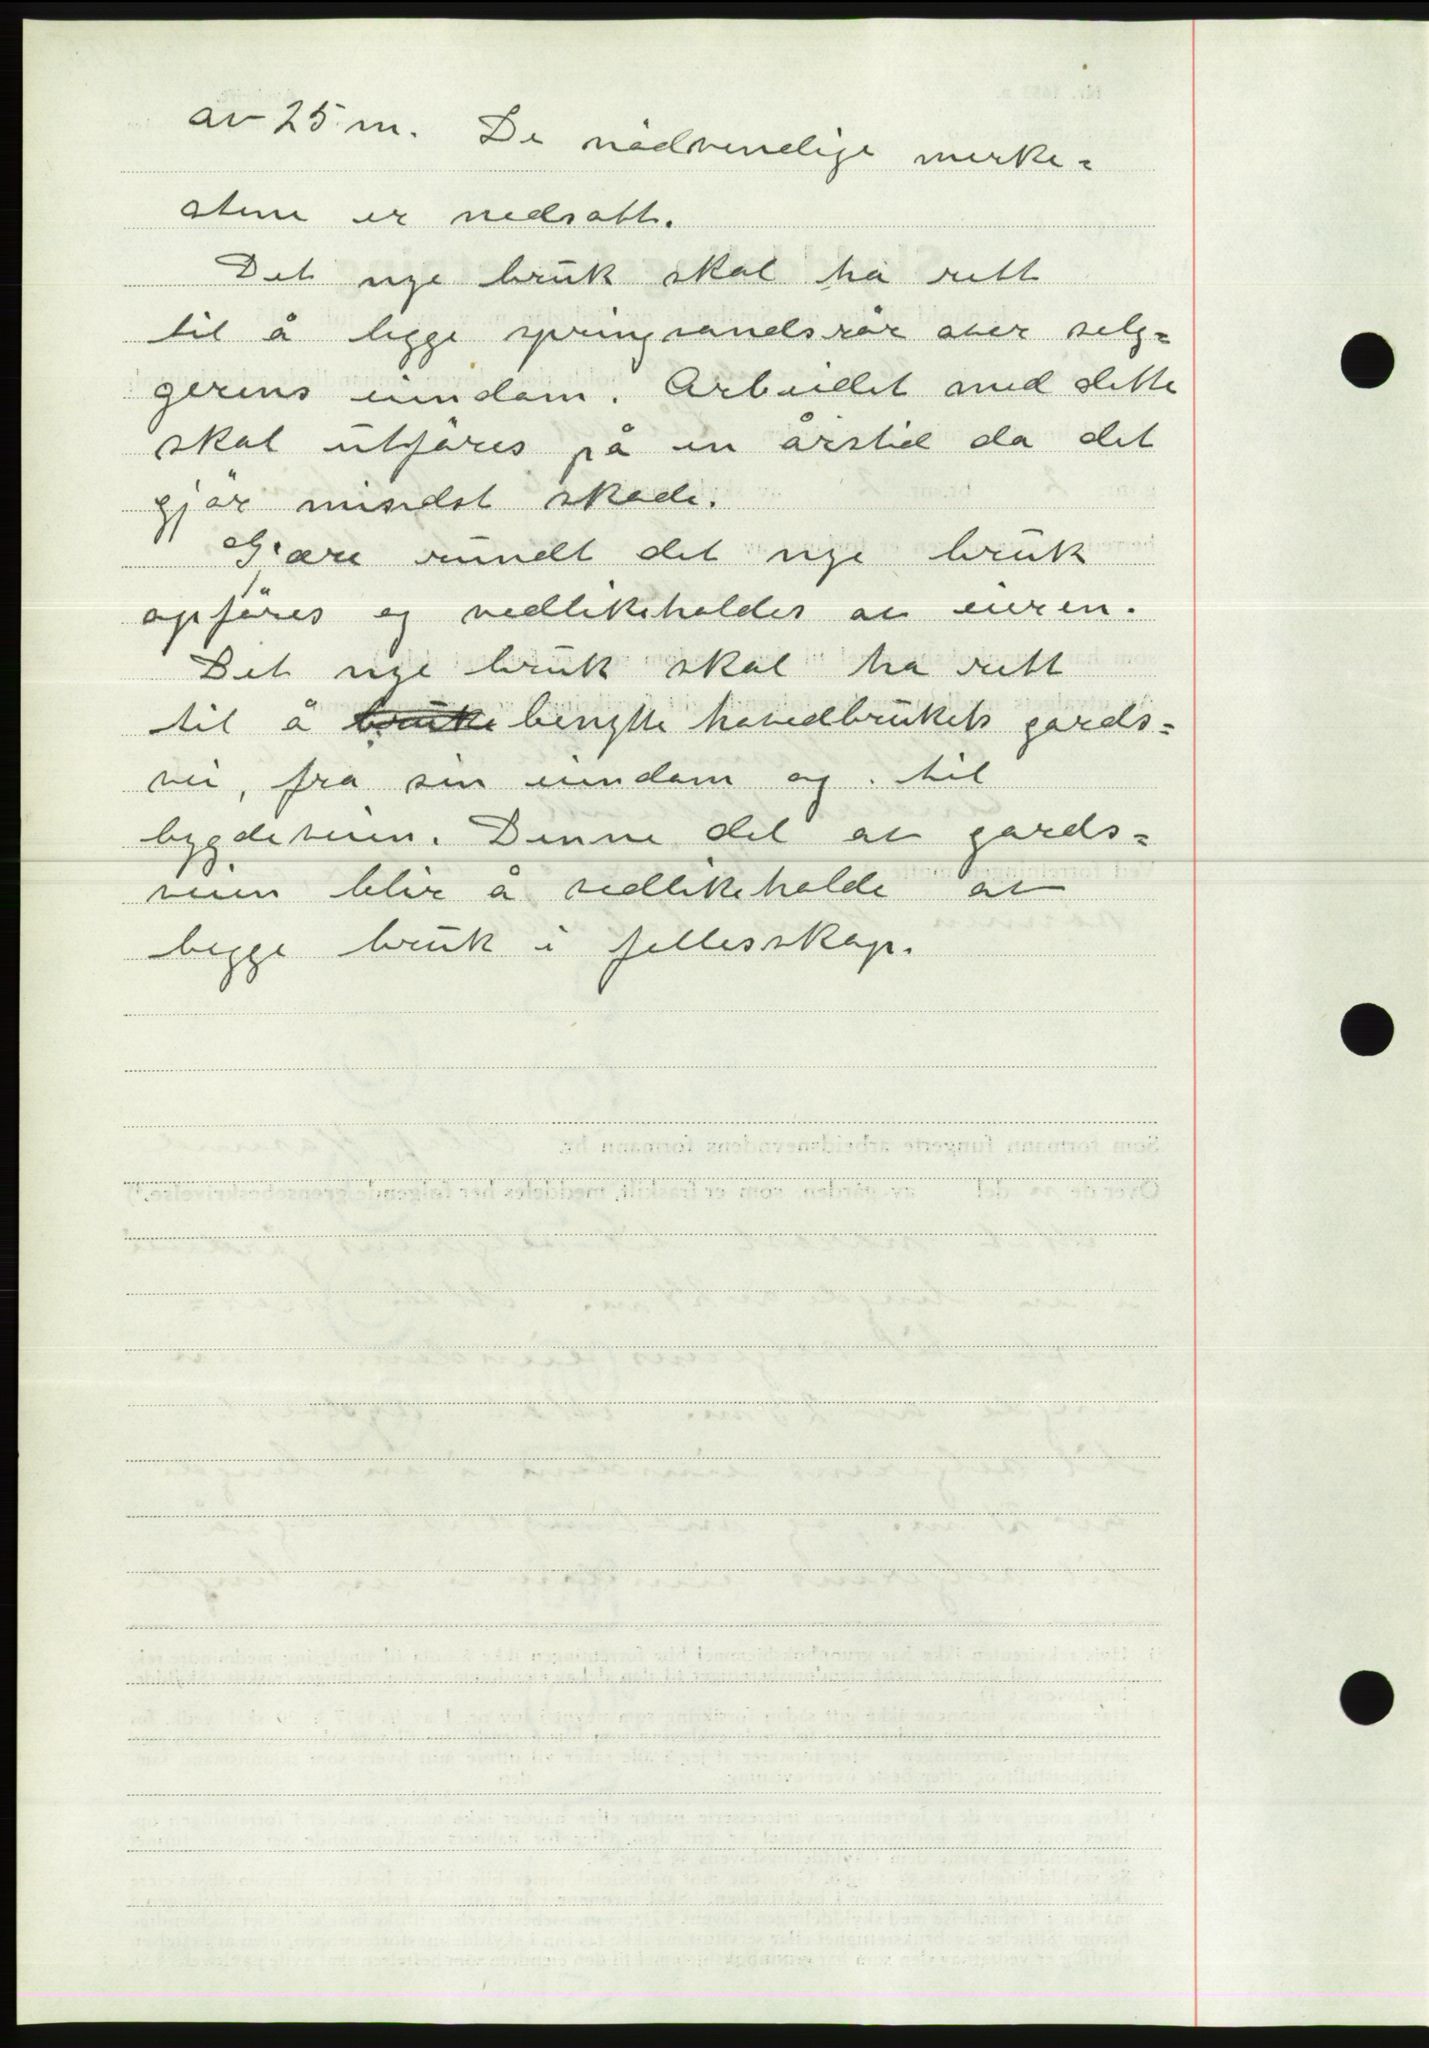 av 25 m. De nödvendige merke=
stene er nedsatt.
Det nye bruk skal ha rett
til å legge springvandsrör over selg=
gerens eiendom. Arbeidet med dette
skal utföres på en årstid da det
gjör mindst skade.
Gjære rundt det nye bruk
opföres og vedlikeholdes av eieren.
Det nye bruk skal ha rett
til å bruke benytte hovedbrukets gards=
vei, fra sin eiendom og til
bygdeveien. Denne del av gards=
veien blir å vedlikeholde av
begge bruk i fellesskap.